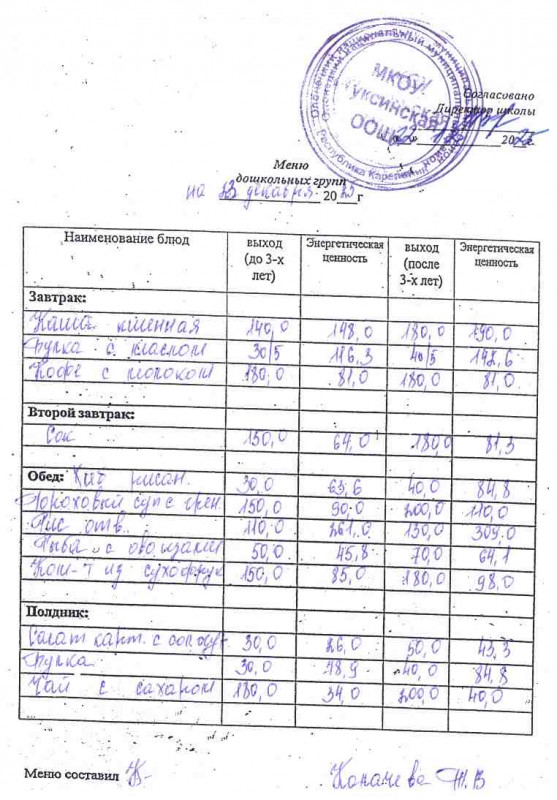 Олонецкий национальный муниципальный
МКОУ
Туксинская
ООШ
Республика Карелия
Согласовано
Директор школы
22 2023
Меню
дошкольных групп
на 23 декабря 2023 г
Наименование блюд выход (до 3-х лет) Энергетическая ценность выход (после 3-х лет) Энергетическая ценность
Завтрак:
Каша пшенная 140,0 148,0 180,0 190,0
Булка с маслом 30/5 116,3 40/5 148,6
Кофе с молоком 180,0 81,0 180,0 81,0
Второй завтрак:
Сок 150,0 64,0 180,0 81,3
Обед: Хлеб ржан. 30,0 63,6 40,0 84,8
Гороховый суп с грен. 150,0 90,0 200,0 110,0
Рис отв. 110,0 261,0 130,0 309,0
Рыба с овощами 50,0 45,8 70,0 64,1
Ком-т из сухофрук 150,0 85,0 180,0 98,0
Полдник:
Салат карт. с 30,0 26,0 50,0 43,3
Булка 30,0 78,9 40,0 84,8
Чай с сахаром 180,0 34,0 200,0 40,0
Меню составил Копачева Т.В